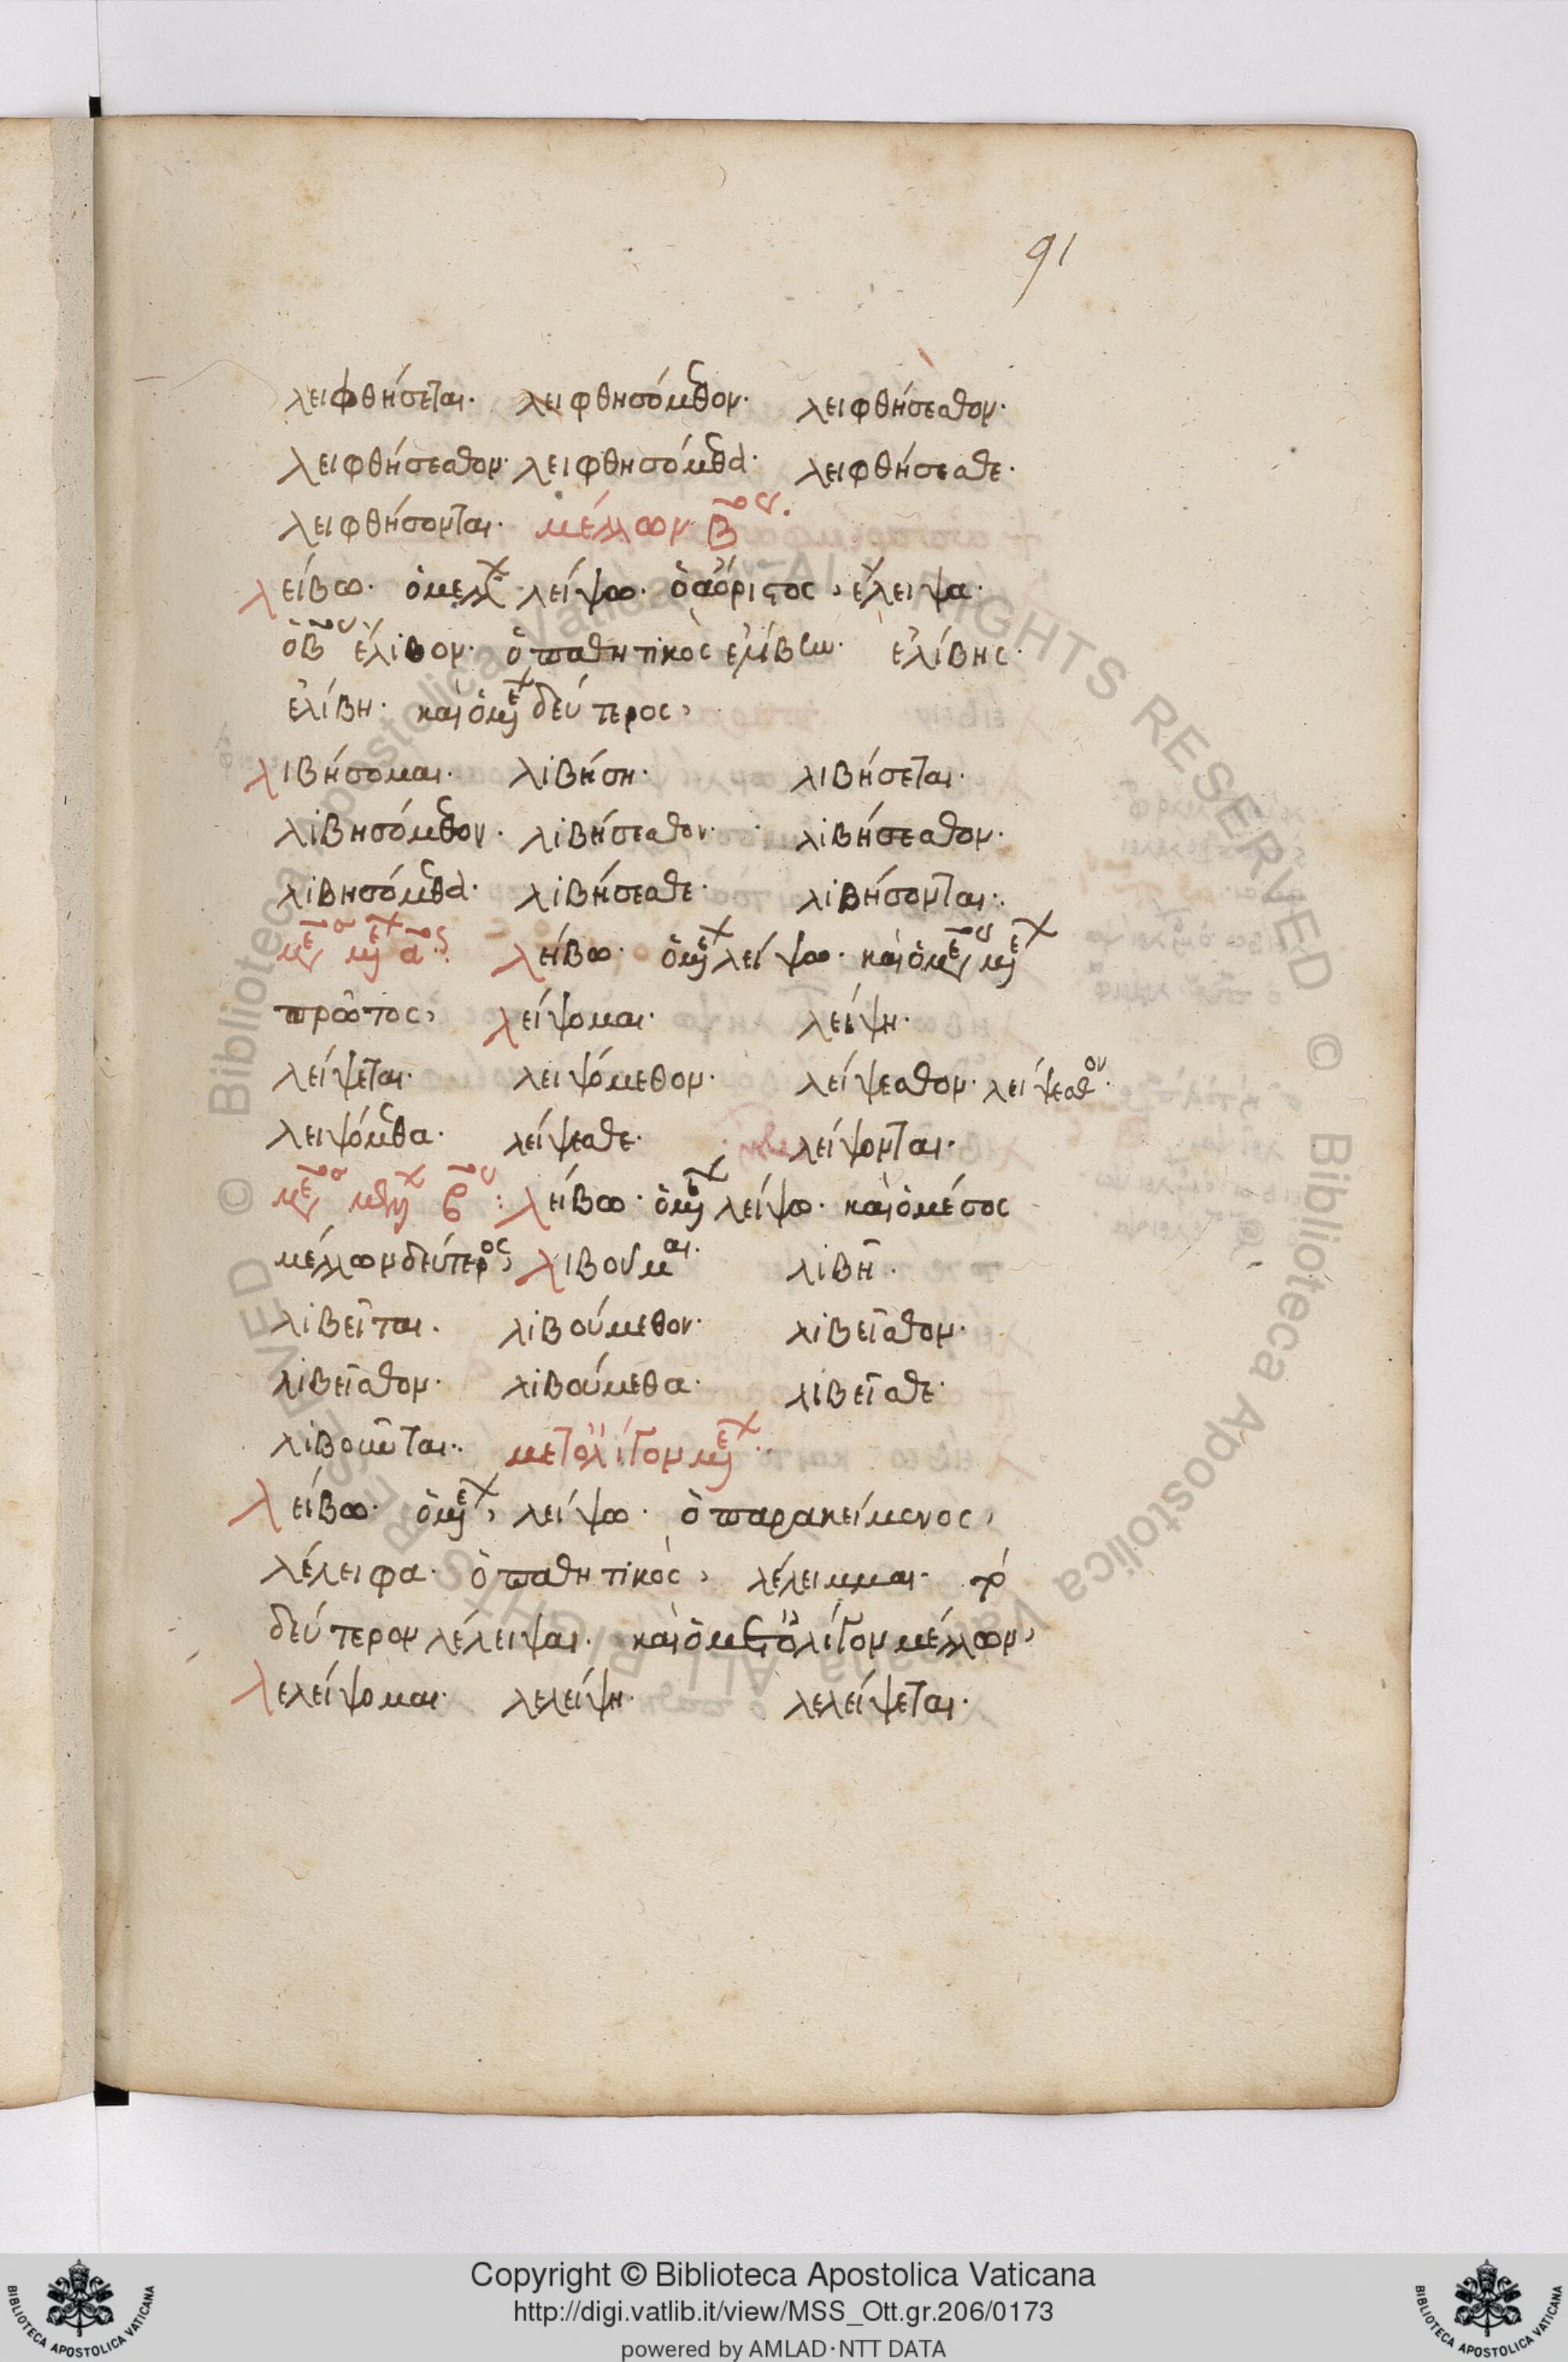 91
λειφθήσεται· λειφθησόμεθον· λειφθήσεσθον·
λειφθήσεσθον· λειφθησόμεθα· λειφθήσεσθε·
λειφθήσονται· μέλλων β΄ος·
λείβω· ὁ μέλλ λείψω· ὁ ἀόριστος, ἔλειψα·
ὁ β΄ος ἔλιβον· ὁ παθητικὸς ἐλίβην· ἐλίβης·
ἐλίβη· καὶ ὁ μελ δεύτερος,
λιβήσομαι· λιβήση· λιβήσεται·
λιβησόμεθον· λιβήσεσθον· λιβήσεσθον·
λιβησόμεθα· λιβήσεσθε· λιβήσονται·
μεσ μελ α΄ος: λείβω· ὁ μελ λείψω· καὶ ὁ μεσ μελ
πρῶτος, λείψομαι· λείψη·
λείψεται· λειψόμεθον· λείψεσθον· λείψεσθον·
λειψόμεθα· λείψεσθε· λείψονται·
μεσ μελ β΄ος: λείβω· ὁ μελ λείψω· καὶ ὁ μέσος
μέλλων δεύτερος, λιβοῦμαι· λιβῆ·
λιβεῖται· λιβούμεθον· λιβεῖσθον·
λιβεῖσθον· λιβούμεθα· λιβεῖσθε·
λιβοῦνται· μετ ὀλίγον μελ·
λείβω· ὁ μελ, λείψω· ὁ παρακείμενος,
λέλειφα· ὁ παθητικὸς, λέλειμμαι· τὸ
δεύτερον λέλειψαι· καὶ ὁ μετ ὀλίγον μέλλων,
λελείψομαι· λελείψη· λελείψεται·
Copyright © Biblioteca Apostolica Vaticana
http://digi.vatlib.it/view/MSS_Ott.gr.206/0173
powered by AMLAD·NTT DATA
BIBLIOTECA APOSTOLICA VATICANA
BIBLIOTECA APOSTOLICA VATICANA